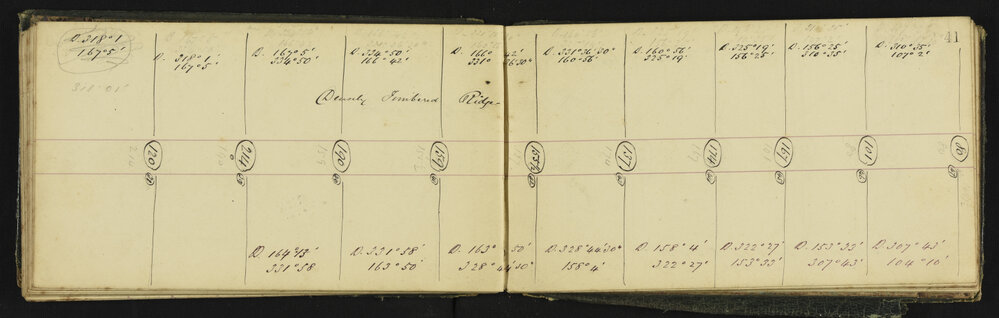 41
D. 318°1'
167°5'
D. 318°1'
167°5'
D. 167°5'
334°50'
D. 334°50'
166°42'
D. 166°42'
331°26'30"
D. 331°26'30"
160°56'
D. 160°56'
325°19'
D. 325°19'
156°25'
D. 156°25'
310°35'
D. 310°35'
107°2'
Densely Timbered Ridge
120
214
190
159
137
174
167
111
80
D. 164°13'
331°58'
D. 331°58'
163°50'
D. 163°50'
328°44'30"
D. 328°44'30"
158°4'
D. 158°4'
322°27'
D. 322°27'
153°33'
D. 153°33'
307°43'
D. 307°43'
104°16'